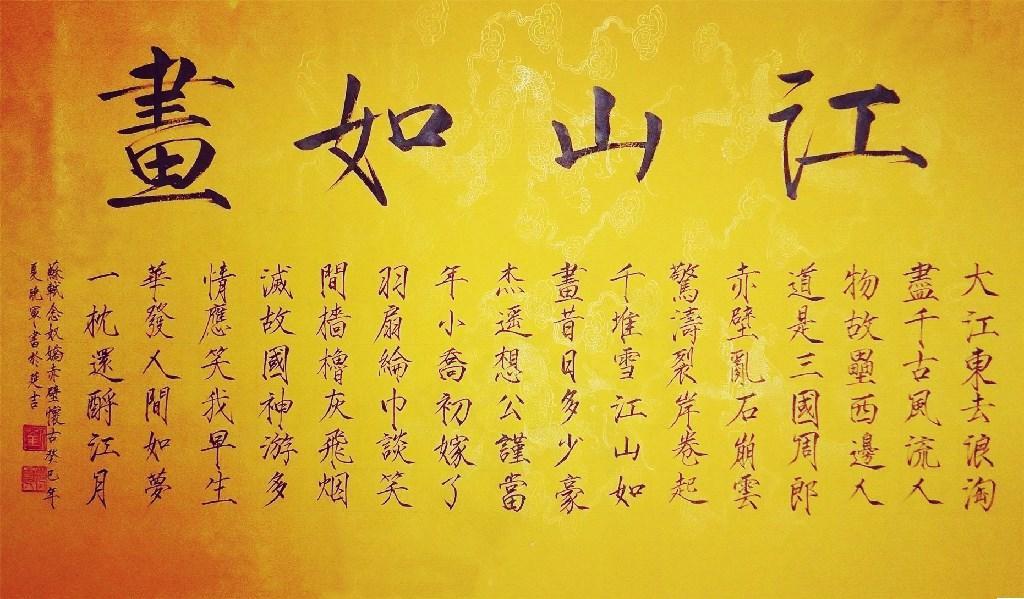 江山如畫
大江東去浪淘
盡千古風流人
物故壘西邊人
道是三國周郎
赤壁亂石崩雲
驚濤裂岸卷起
千堆雪江山如
畫昔日多少豪
杰遥想公謹當
年小喬初嫁了
羽扇綸巾談笑
間檣櫓灰飛烟
滅故國神游多
情應笑我早生
華發人間如夢
一枕還酹江月
蘇軾念奴嬌赤壁懷古癸巳年
夏軍書於